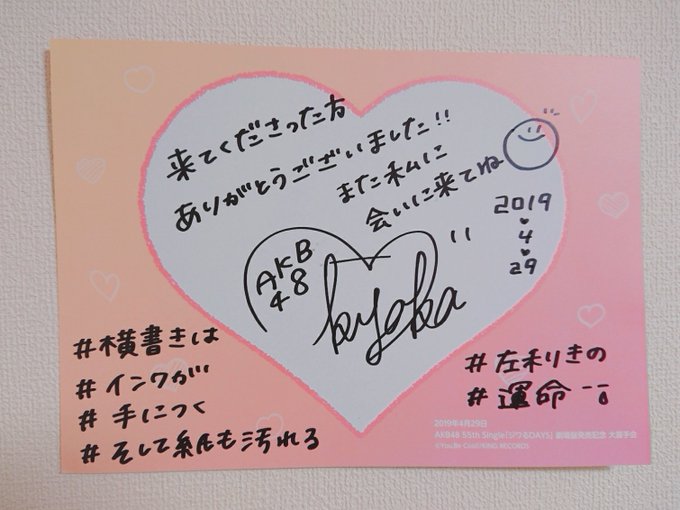 来てくださった方
ありがとうございました!!
また私に
会いに来てね
2019
4
29
AKB
48
#横書きは
#インクが
#手につく
#そして紙も汚れる
#左利きの
#運命
2019年4月29日
AKB48 55th Single「ジワるDAYS」劇場盤発売記念 大握手会
©You, Be Cool!/KING RECORDS